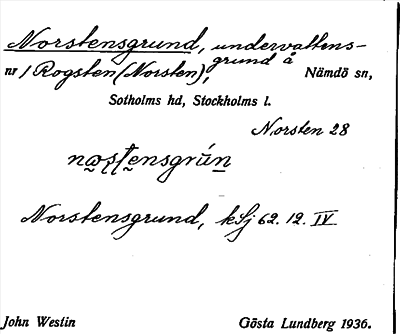 Norstensgrund, undervattens-
grund å
nr / Rogsten (Norsten), Nämdö sn,
Sotholms hd, Stockholms l.
Norsten 28
Norstensgrund, kSj 62. 12. IV
John Westin Gösta Lundberg 1936.